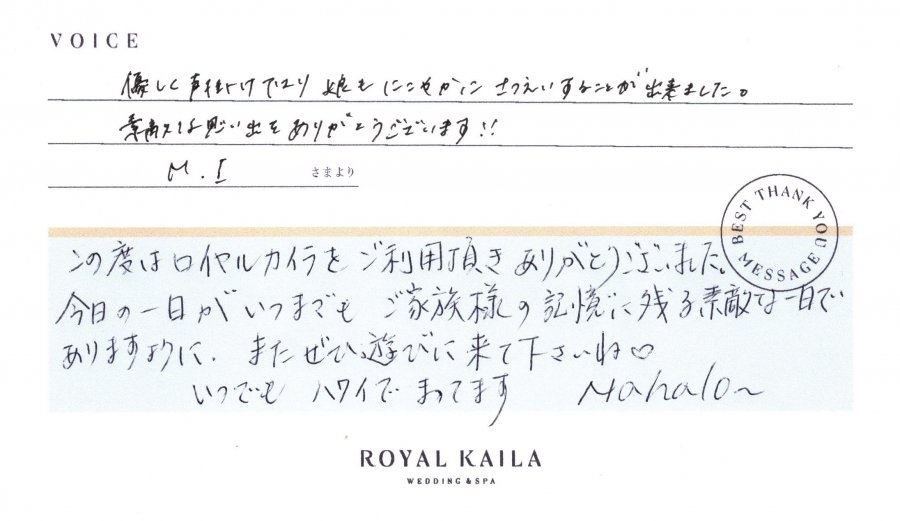 VOICE
優しく声掛け下さり 娘も にこやかに さつえいすることが出来ました。
素敵な思い出を ありがとうございます!!
M.I さまより
BEST THANK YOU MESSAGE
この度はロイヤルカイラを ご利用頂き ありがとうございました。
今日の一日が いつまでも ご家族様の記憶に残る素敵な一日で
ありますように. またぜひ遊びに来て下さいね♡
いつでも ハワイで まってます Mahalo~
ROYAL KAILA
WEDDING & SPA